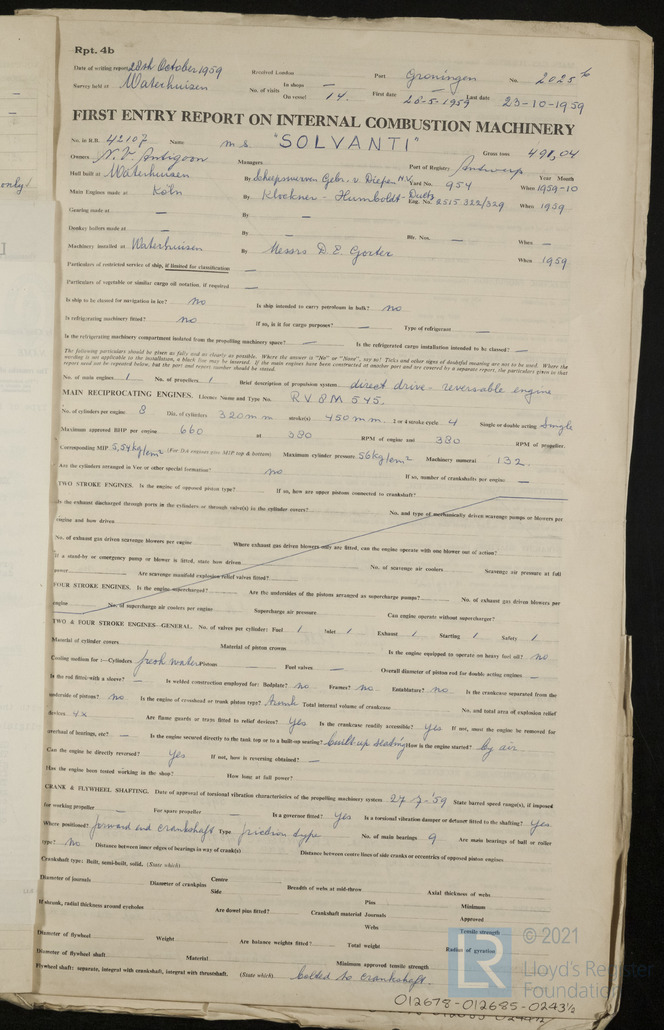 Rpt. 4b
Date of writing report 28th October 1959 Received London Port Groningen No. 2025
Survey held at Waterhuizen No. of visits In shops — On vessel 14. First date 26-5-1959 Last date 23-10-1959
FIRST ENTRY REPORT ON INTERNAL COMBUSTION MACHINERY
No. in R.B. 42107 Name m.s. "SOLVANTI" Gross tons 491,04
Owners N.V. Antigoon Managers Port of Registry Antwerp
Hull built at Waterhuizen By Scheepswerven Gebr. v. Diepen N.V. Yard No. 954 Year Month When 1959-10
Main Engines made at Köln By Klockner - Humboldt-Deutz Eng. No. 2515 322/329 When 1959
Gearing made at — By —
Donkey boilers made at — By — Blr. Nos. — When —
Machinery installed at Waterhuizen By Messrs D.E. Gorter When 1959
Particulars of restricted service of ship, if limited for classification —
Particulars of vegetable or similar cargo oil notation, if required —
Is ship to be classed for navigation in ice? no Is ship intended to carry petroleum in bulk? no
Is refrigerating machinery fitted? no If so, is it for cargo purposes? — Type of refrigerant —
Is the refrigerating machinery compartment isolated from the propelling machinery space? — Is the refrigerated cargo installation intended to be classed? —
The following particulars should be given as fully and as clearly as possible. Where the answer is "No" or "None", say so! Ticks and other signs of doubtful meaning are not to be used. Where the
wording is not applicable to the installation, a black line may be inserted. If the main engines have been constructed at another port and are covered by a separate report, the particulars given in that
report need not be repeated below, but the port and report number should be stated.
No. of main engines 1 No. of propellers 1 Brief description of propulsion system direct drive - reversable engine
MAIN RECIPROCATING ENGINES. Licence Name and Type No. RV8M 545.
No. of cylinders per engine 8 Dia. of cylinders 320 mm stroke(s) 450 mm. 2 or 4 stroke cycle 4 Single or double acting Single
Maximum approved BHP per engine 660 at 380 RPM of engine and 380 RPM of propeller.
Corresponding MIP 5,54 kg/cm² (For DA engines give MIP top & bottom) Maximum cylinder pressure 56 kg/cm² Machinery numeral 132.
Are the cylinders arranged in Vee or other special formation? no If so, number of crankshafts per engine —
TWO STROKE ENGINES. Is the engine of opposed piston type? If so, how are upper pistons connected to crankshaft?
Is the exhaust discharged through ports in the cylinders or through valve(s) in the cylinder covers? No. and type of mechanically driven scavenge pumps or blowers per
engine and how driven
No. of exhaust gas driven scavenge blowers per engine Where exhaust gas driven blowers only are fitted, can the engine operate with one blower out of action?
If a stand-by or emergency pump or blower is fitted, state how driven No. of scavenge air coolers Scavenge air pressure at full
power Are scavenge manifold explosion relief valves fitted?
FOUR STROKE ENGINES. Is the engine supercharged? Are the undersides of the pistons arranged as supercharge pumps? No. of exhaust gas driven blowers per
engine No. of supercharge air coolers per engine Supercharge air pressure Can engine operate without supercharger?
TWO & FOUR STROKE ENGINES—GENERAL. No. of valves per cylinder: Fuel 1 Inlet 1 Exhaust 1 Starting 1 Safety 1
Material of cylinder covers Material of piston crowns Is the engine equipped to operate on heavy fuel oil? no
Cooling medium for :—Cylinders fresh water Pistons Fuel valves — Overall diameter of piston rod for double acting engines —
Is the rod fitted with a sleeve? — Is welded construction employed for: Bedplate? no Frames? no Entablature? no Is the crankcase separated from the
underside of pistons? no Is the engine of crosshead or trunk piston type? trunk Total internal volume of crankcase No. and total area of explosion relief
devices 4x Are flame guards or traps fitted to relief devices? yes Is the crankcase readily accessible? yes If not, must the engine be removed for
overhaul of bearings, etc? — Is the engine secured directly to the tank top or to a built-up seating? built-up seating How is the engine started? by air
Can the engine be directly reversed? yes If not, how is reversing obtained? —
Has the engine been tested working in the shop? How long at full power?
CRANK & FLYWHEEL SHAFTING. Date of approval of torsional vibration characteristics of the propelling machinery system 27-7-'59 State barred speed range(s), if imposed
for working propeller — For spare propeller — Is a governor fitted? yes Is a torsional vibration damper or detuner fitted to the shafting? yes
Where positioned? forward end crankshaft Type friction type No. of main bearings 9 Are main bearings of ball or roller
type? no Distance between inner edges of bearings in way of crank(s) Distance between centre lines of side cranks or eccentrics of opposed piston engines
Crankshaft type: Built, semi-built, solid. (State which)
Diameter of journals Diameter of crankpins Centre Side Breadth of webs at mid-throw Axial thickness of webs
If shrunk, radial thickness around eyeholes Are dowel pins fitted? Crankshaft material Pins Journals Webs Minimum Approved Tensile strength
Diameter of flywheel Weight Are balance weights fitted? Total weight Radius of gyration
Diameter of flywheel shaft Material Minimum approved tensile strength
Flywheel shaft: separate, integral with crankshaft, integral with thrustshaft. (State which) bolted to crankshaft.
© 2021
LR
Lloyd's Register
Foundation
012678-012685-0243½
only